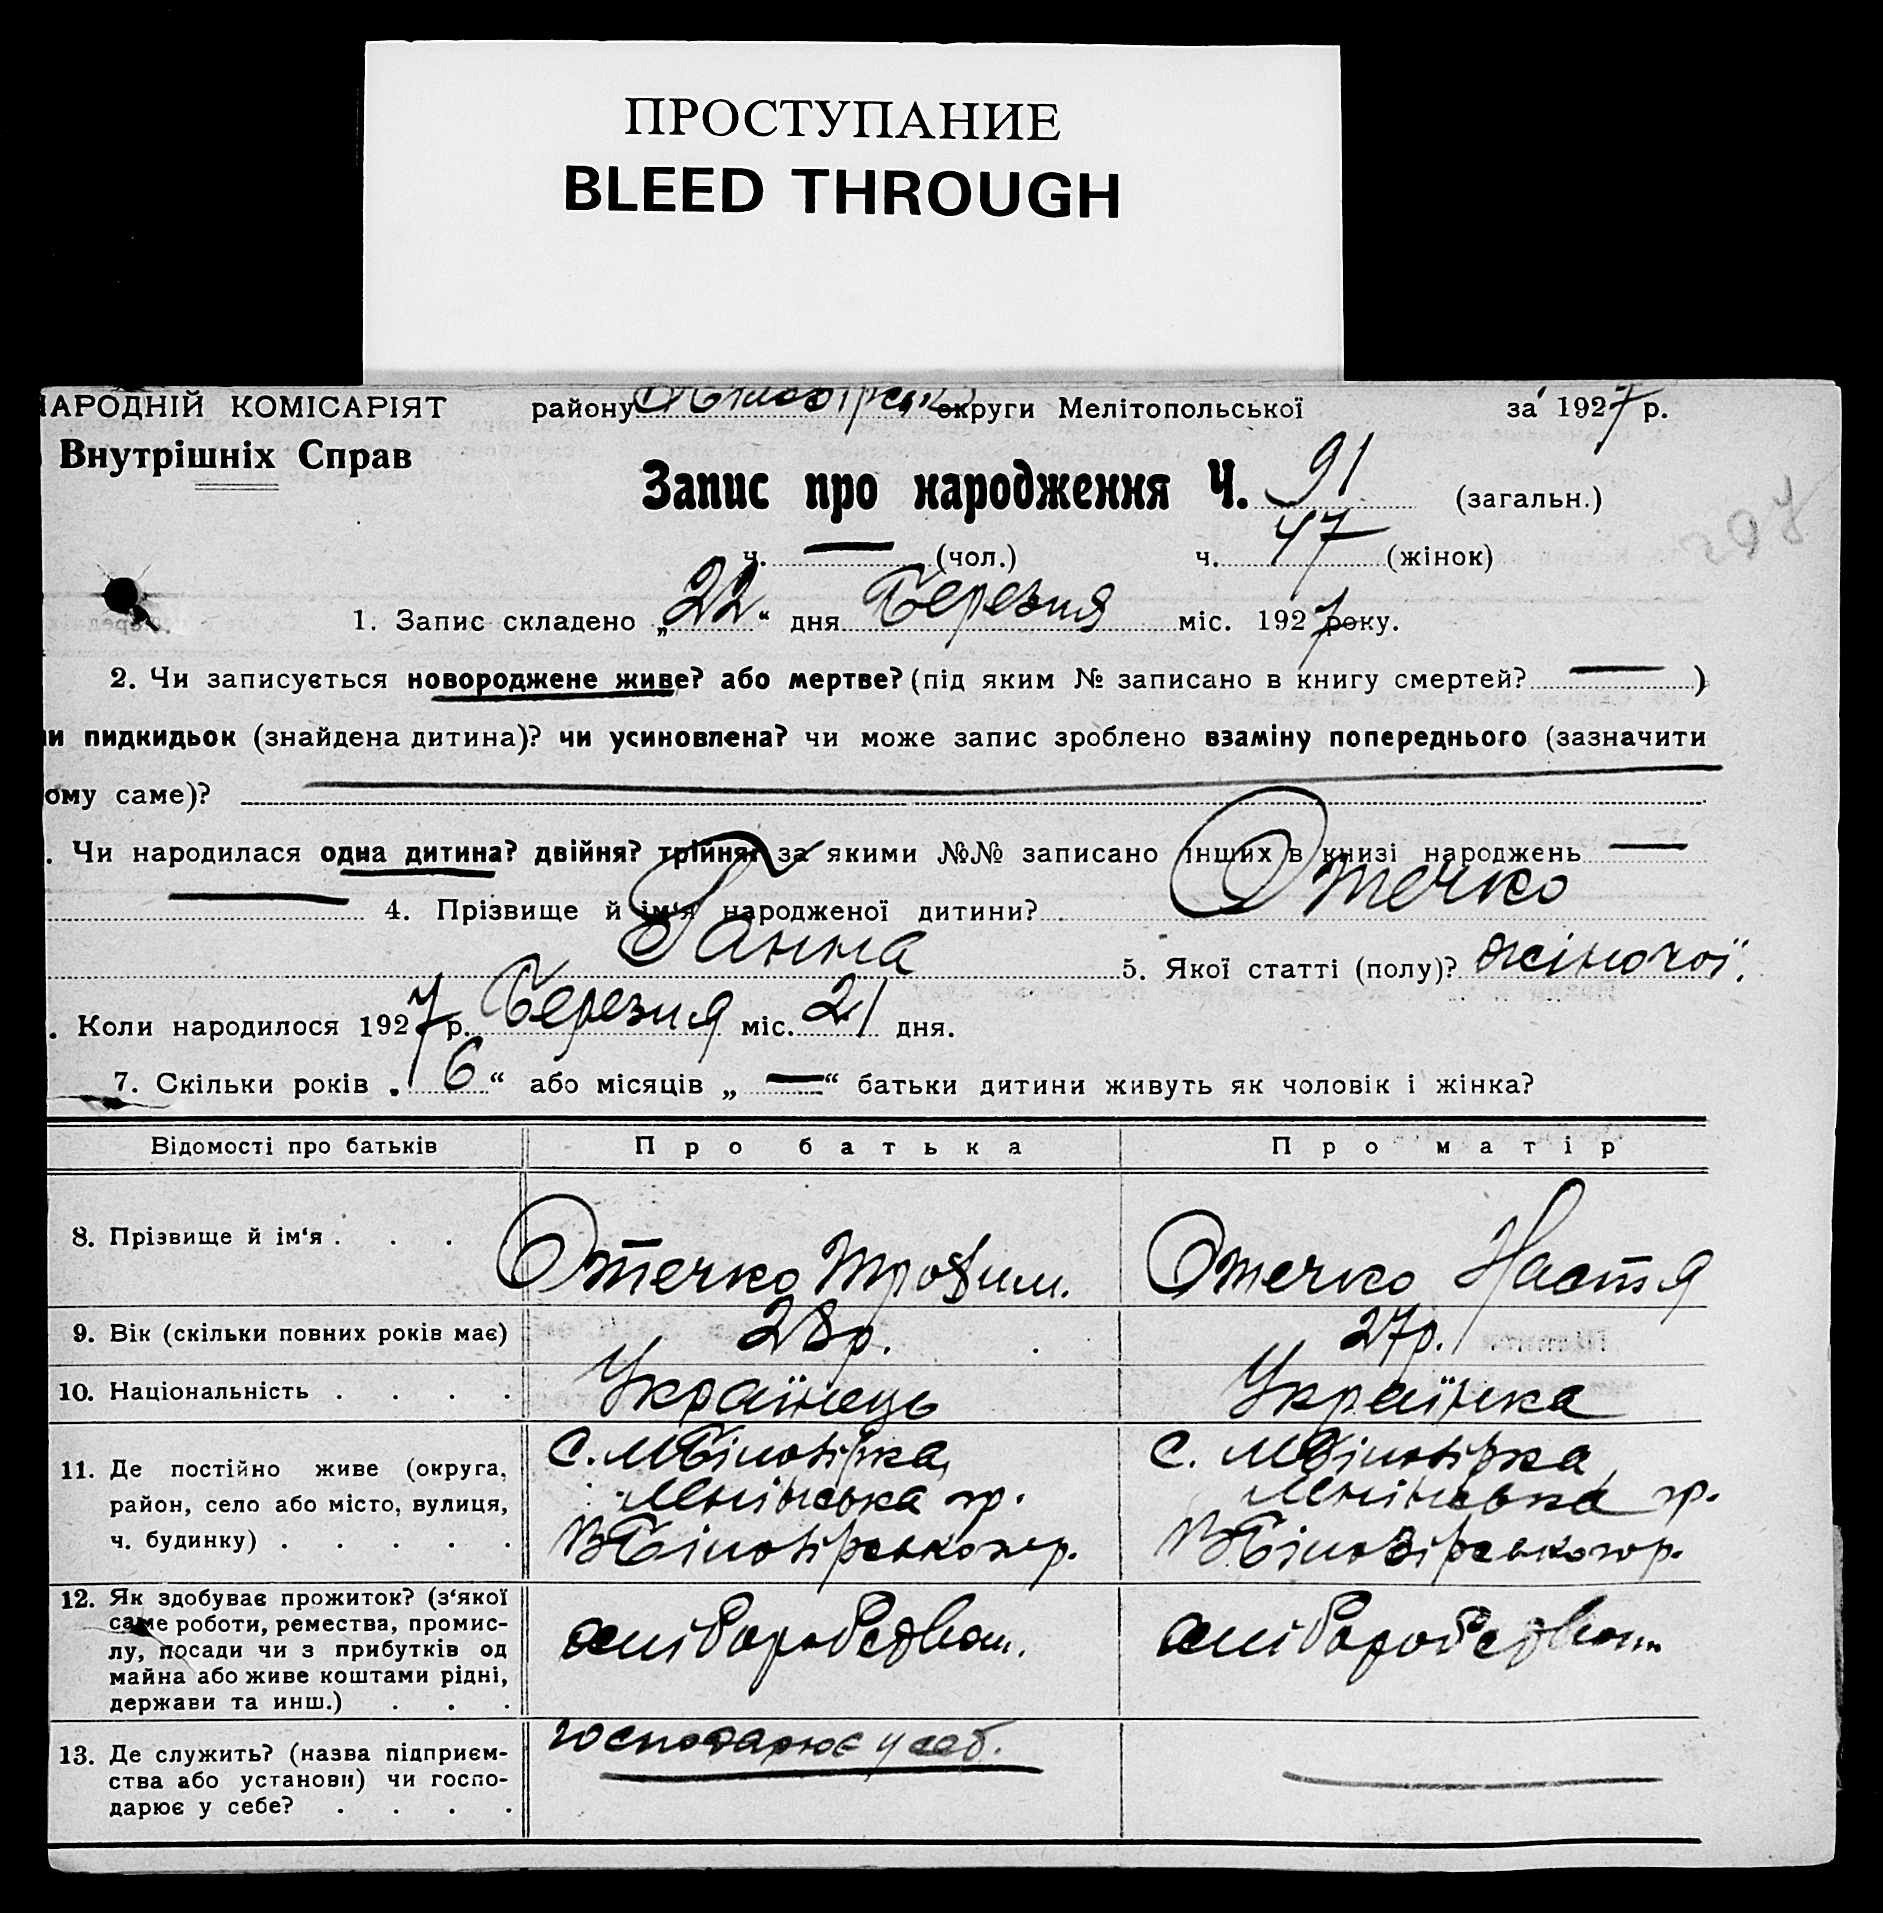 ПРОСТУПАНИЕ
BLEED THROUGH
НАРОДНІЙ КОМІСАРІЯТ району округи Мелітопольської за 1927 р.
Внутрішніх Справ
Запис про народження Ч. 91 (загальн.)
ч. — (чол.) ч. 47 (жінок)
297
1. Запис складено „22“ дня Березня міс. 1927 року.
2. Чи записується новороджене живе? або мертве? (під яким № записано в книгу смертей? — )
и пидкидьок (знайдена дитина)? чи усиновлена? чи може запис зроблено взаміну попереднього (зазначити
ому саме)?
. Чи народилася одна дитина? двійня? трійня? за якими №№ записано інших в книзі народжень —
— 4. Прізвище й ім'я народженої дитини? Отечко
Ганна 5. Якої статті (полу)? жіночої.
. Коли народилося 1927 р. Березня міс. 21 дня.
7. Скільки років „6“ або місяців „—“ батьки дитини живуть як чоловік і жінка?
Відомості про батьків Про батька Про матір
8. Прізвище й ім'я . . . Отечко Трофим. Отечко Настя
9. Вік (скільки повних років має) 28 р. 27 р.
10. Національність . . . . Українець Українка
11. Де постійно живе (округа, с. М Білозірка, с. М Білозірка,
район, село або місто, вулиця, Ленінська гр. Ленінська гр.
ч. будинку) . . . . . В Білозірського р. В. Білозірського р.
12. Як здобуває прожиток? (з'якої
саме роботи, ремества, промис- хліборобством. хліборобством
лу, посади чи з прибутків од
майна або живе коштами рідні,
держави та инш.) . . .
13. Де служить? (назва підприєм- господарює у себ. —
ства або установи) чи госпо-
дарює у себе? . . . .